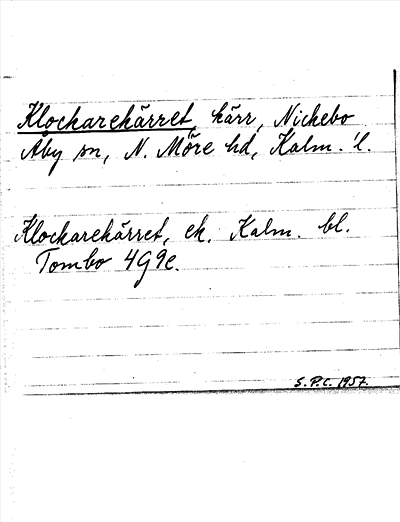 Klockarekärret, kärr, Nickebo
Åby sn, N. Möre hd, Kalm. l.
Klockarekärret, ek. Kalm. bl.
Tombo 4G9e.
S.P.C. 1957.